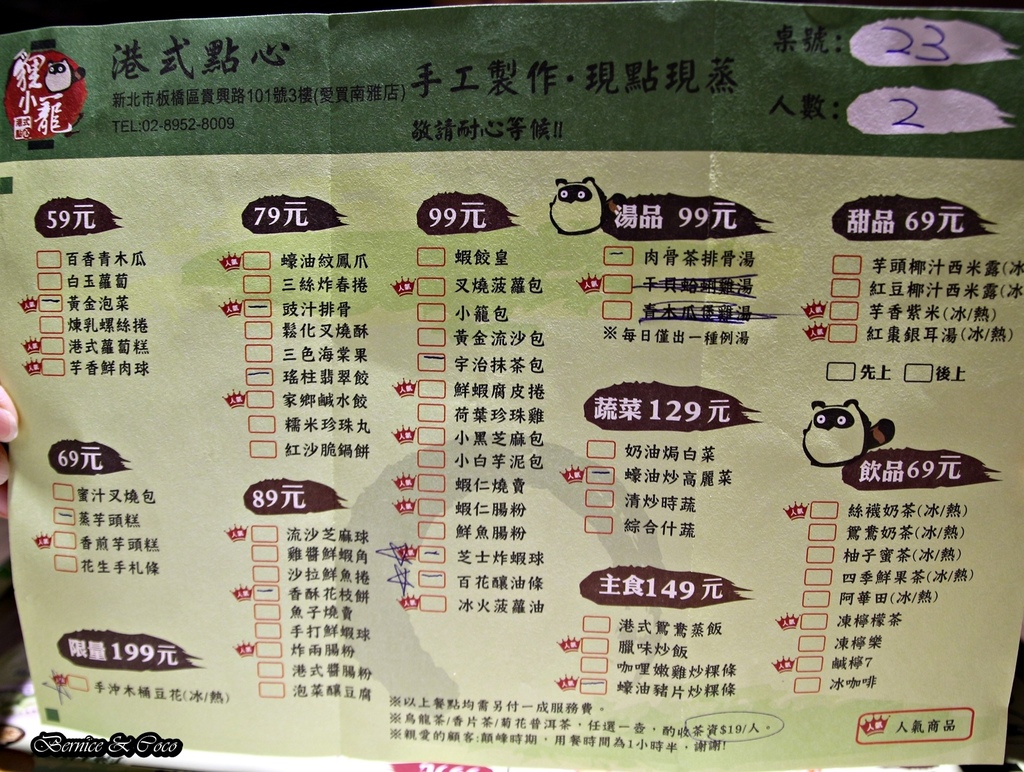 狸小籠
港式點心
港式點心
新北市板橋區貴興路101號3樓(愛買南雅店)
TEL:02-8952-8009
手工製作·現點現蒸
敬請耐心等候!!
桌號: 23
人數: 2
59元
百香青木瓜
白玉蘿蔔
人氣 黃金泡菜
煉乳螺絲捲
人氣 港式蘿蔔糕
人氣 芋香鮮肉球
69元
蜜汁叉燒包
蒸芋頭糕
人氣 香煎芋頭糕
花生手札條
限量199元
人氣 手沖木桶豆花(冰/熱)
79元
人氣 蠔油紋鳳爪
三絲炸春捲
人氣 豉汁排骨
鬆化叉燒酥
三色海棠果
瑤柱翡翠餃
人氣 家鄉鹹水餃
糯米珍珠丸
紅沙脆鍋餅
89元
人氣 流沙芝麻球
雞醬鮮蝦角
沙拉鮮魚捲
人氣 香酥花枝餅
魚子燒賣
手打鮮蝦球
人氣 炸兩腸粉
港式醬腸粉
泡菜釀豆腐
99元
蝦餃皇
人氣 叉燒菠蘿包
小籠包
黃金流沙包
宇治抹茶包
人氣 鮮蝦腐皮捲
荷葉珍珠雞
人氣 小黑芝麻包
小白芋泥包
人氣 蝦仁燒賣
人氣 蝦仁腸粉
鮮魚腸粉
人氣 芝士炸蝦球
百花釀油條
人氣 冰火菠蘿油
湯品 99元
肉骨茶排骨湯
人氣 干貝蛤蜊雞湯
青木瓜煲雞湯
※每日僅出一種例湯
蔬菜129元
奶油焗白菜
人氣 蠔油炒高麗菜
清炒時蔬
綜合什蔬
主食149元
港式鴛鴦蒸飯
人氣 臘味炒飯
咖哩嫩雞炒粿條
人氣 蠔油豬片炒粿條
甜品 69元
芋頭椰汁西米露(冰
紅豆椰汁西米露(冰
人氣 芋香紫米(冰/熱)
人氣 紅棗銀耳湯(冰/熱)
先上 後上
飲品69元
人氣 絲襪奶茶(冰/熱)
鴛鴦奶茶(冰/熱)
柚子蜜茶(冰/熱)
四季鮮果茶(冰/熱)
阿華田(冰/熱)
人氣 凍檸檬茶
凍檸樂
人氣 鹹檸7
冰咖啡
※以上餐點均需另付一成服務費。
※烏龍茶/香片茶/菊花普洱茶,任選一壺,酌收茶資$19/人。
※親愛的顧客:顛峰時期,用餐時間為1小時半,謝謝!
人氣 人氣商品
Bernice & Coco